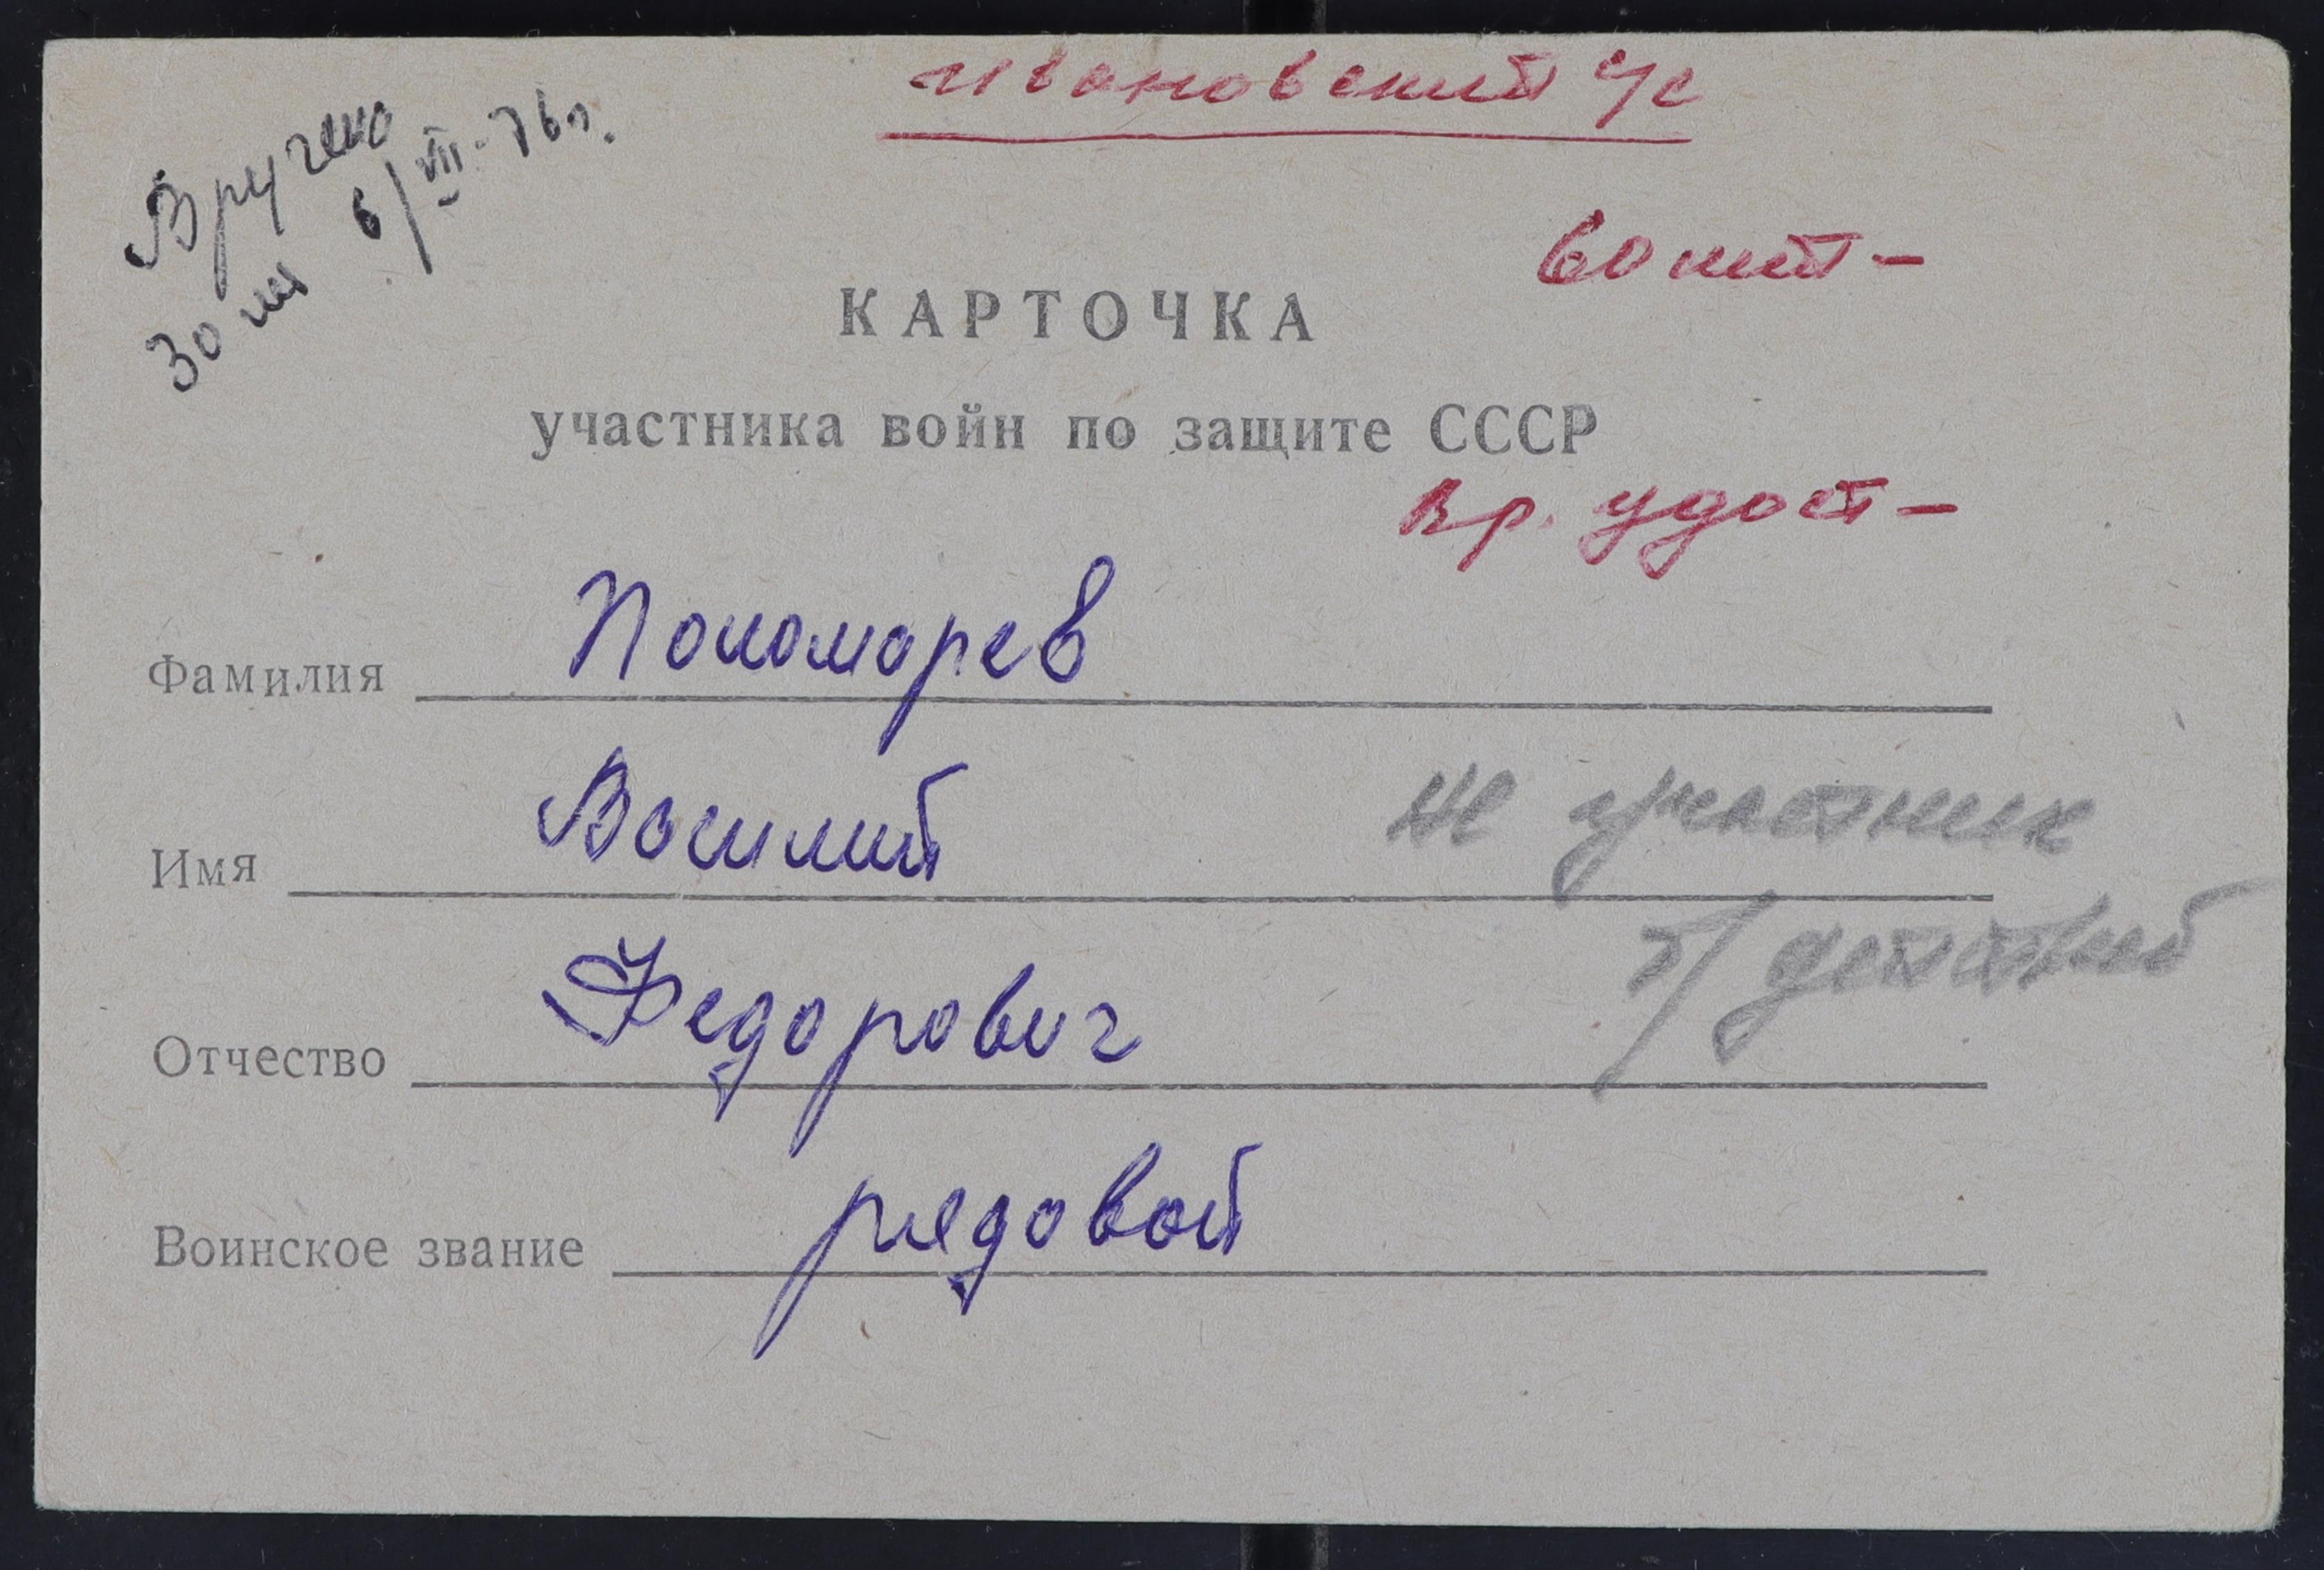 Ивановский с/с
Вручено
30 лет 6/VII-76 г.
60 лет –
КАРТОЧКА
участника войн по защите СССР
вр. удост –
Фамилия Пономарев
Имя Василий
не участник
б/действий
Отчество Федорович
Воинское звание рядовой